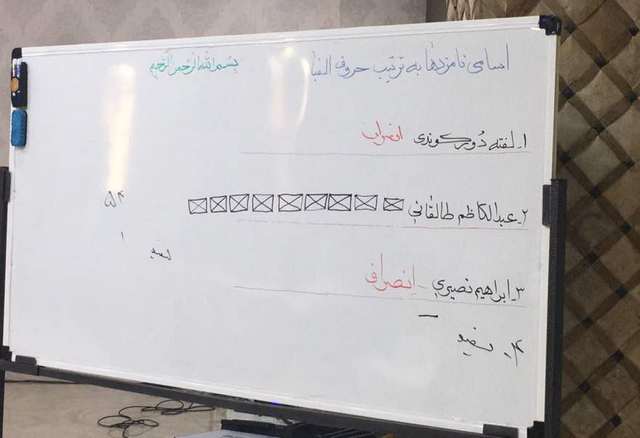 بسم الله الرحمن الرحیم
اسامی نامزدها به ترتیب حروف الفبا
۱_ لفته دورکوندی انصراف
۲_ عبدالکاظم طالقانی
۳_ ابراهیم نصیری _ انصراف
۴_ سفید
۱ سفید